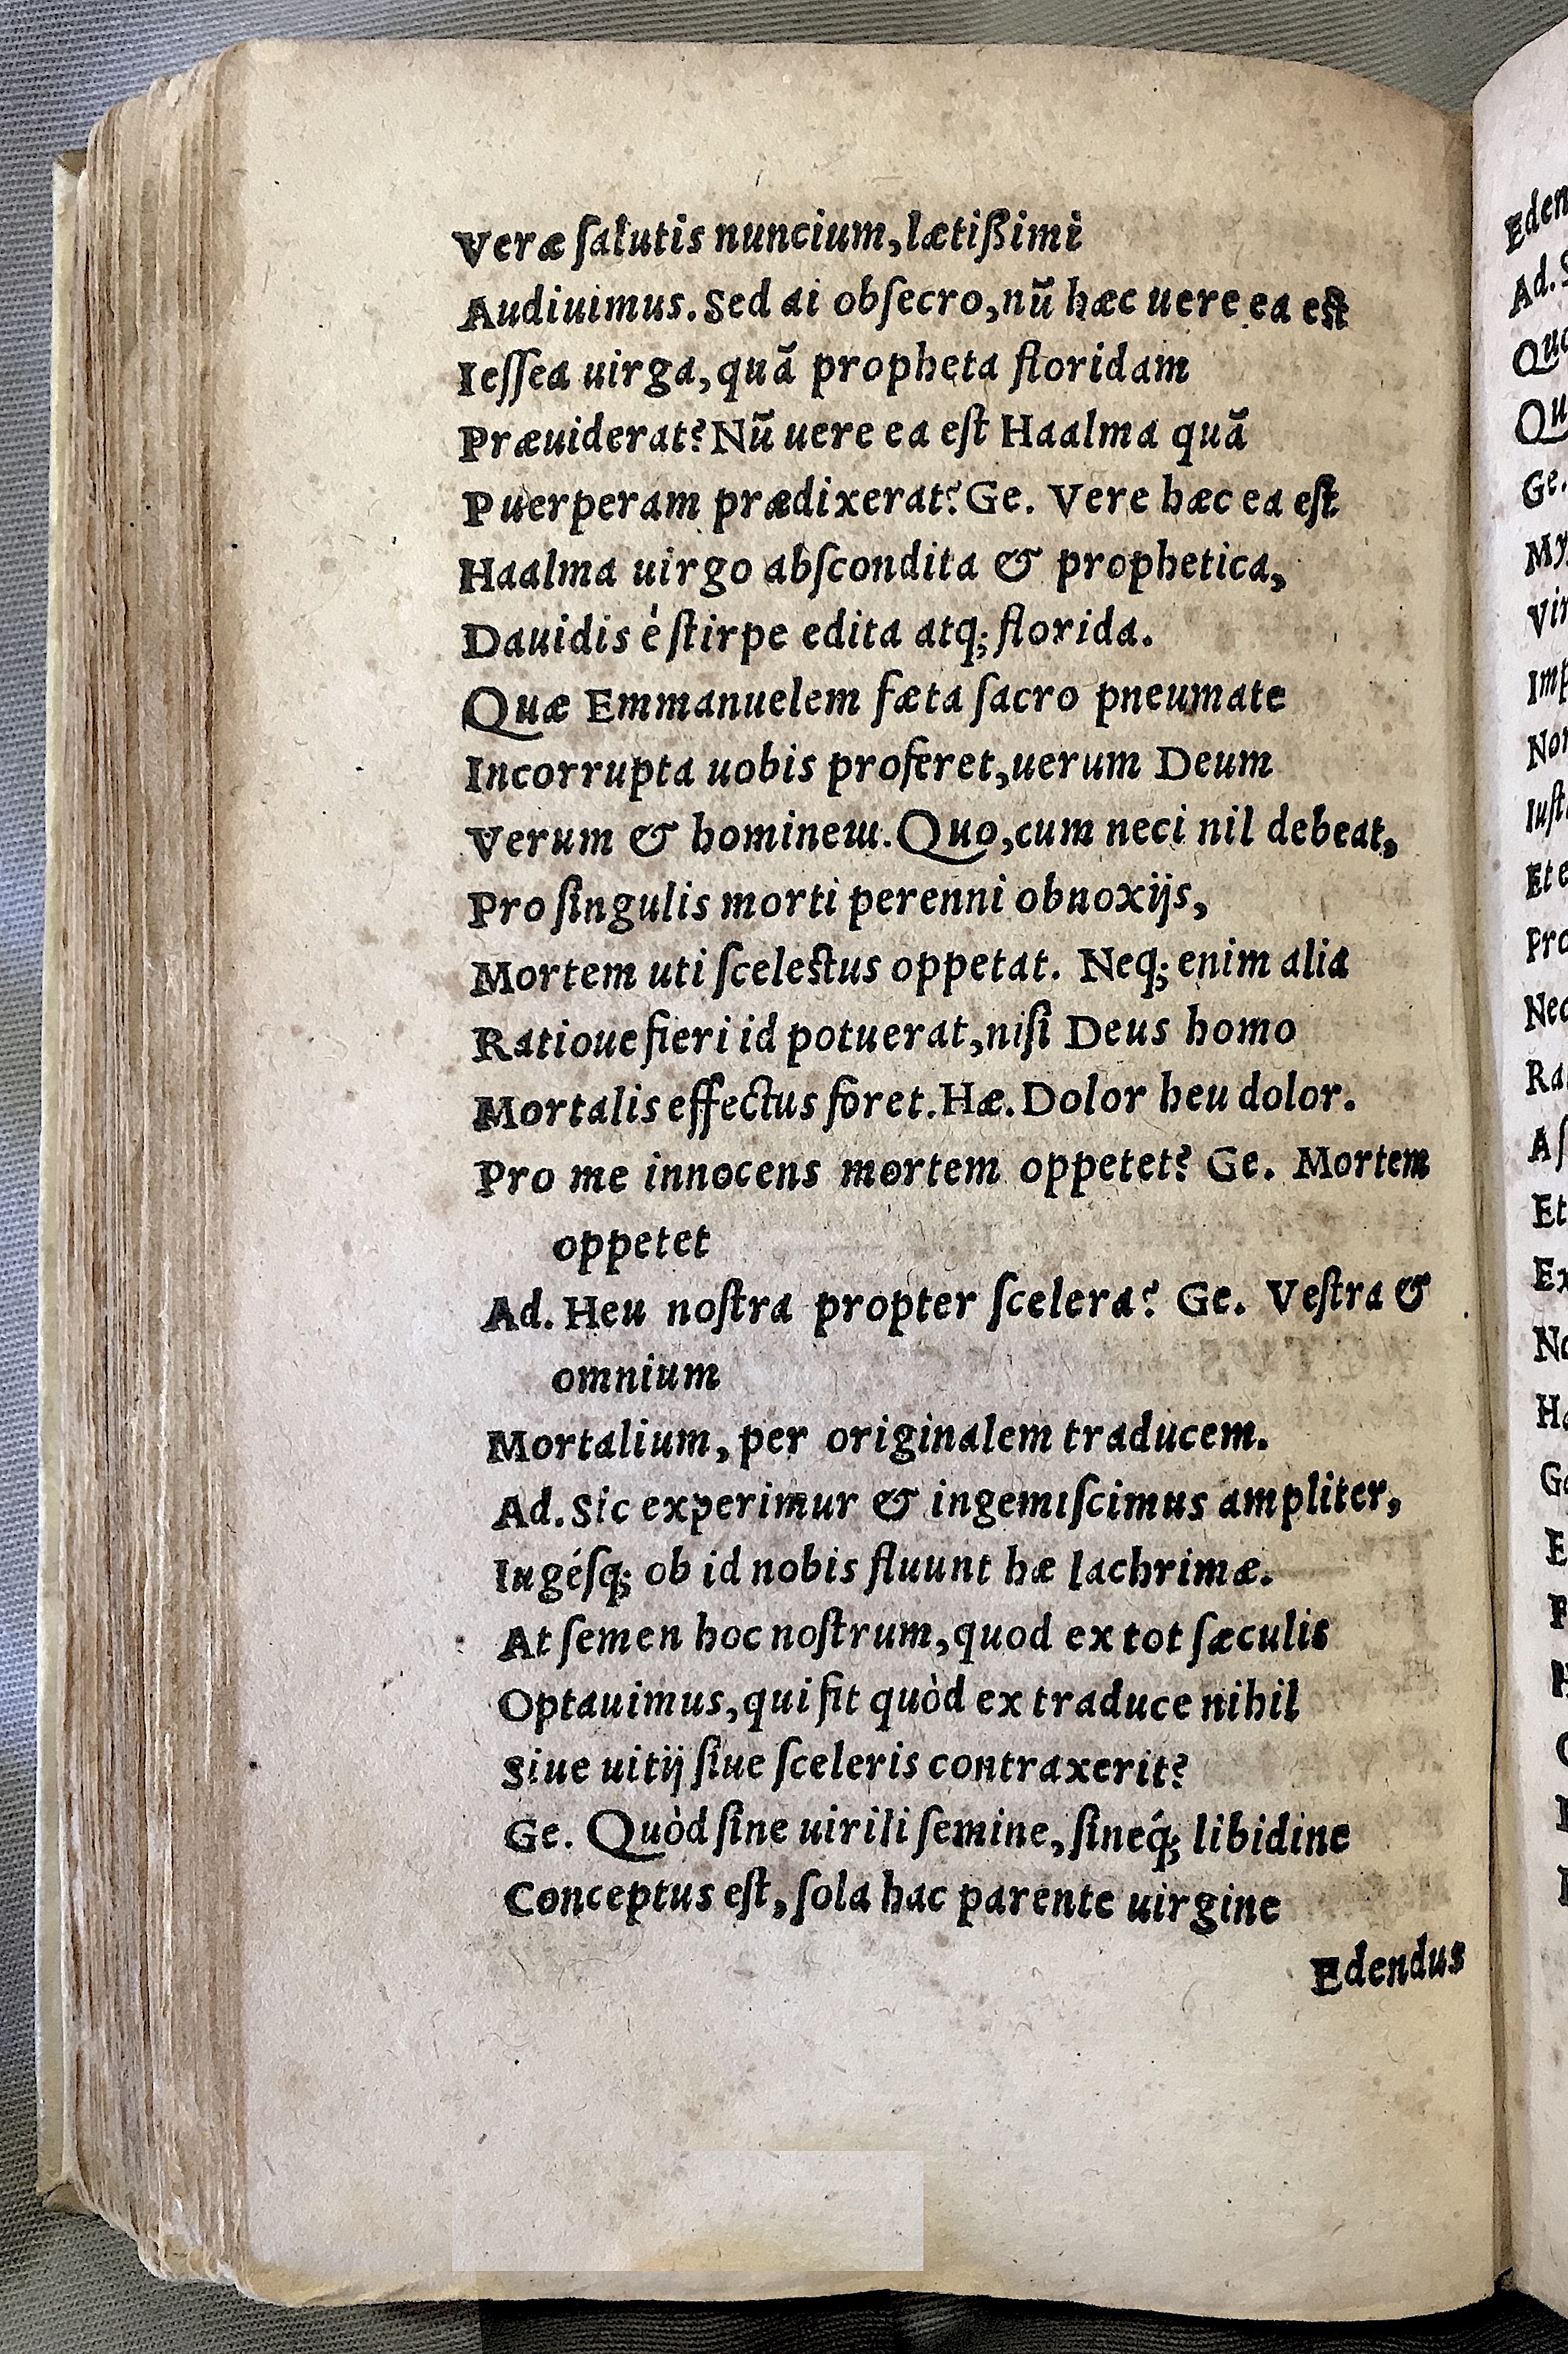 Veræ ſalutis nuncium, lætißimi
Audiuimus. Sed ai obſecro, nū hæc uere ea eſt
Ieſſea uirga, quā propheta floridam
Præuiderat? Nū uere ea eſt Haalma quā
Puerperam prædixerat? Ge. Vere hæc ea eſt
Haalma uirgo abſcondita & prophetica,
Dauidis è ſtirpe edita atq; florida.
Quæ Emmanuelem fæta ſacro pneumate
Incorrupta uobis proferet, uerum Deum
Verum & hominem. Quo, cum neci nil debeat,
Pro ſingulis morti perenni obnoxijs,
Mortem uti ſceleſtus oppetat. Neq; enim alia
Ratioue fieri id potuerat, niſi Deus homo
Mortalis effectus foret. Hæ. Dolor heu dolor.
Pro me innocens mortem oppetet? Ge. Mortem
oppetet
Ad. Heu noſtra propter ſcelera? Ge. Veſtra &
omnium
Mortalium, per originalem traducem.
Ad. Sic experimur & ingemıſcimus ampliter,
Iugéſq; ob id nobis fluunt hæ lachrimæ.
At ſemen hoc noſtrum, quod ex tot ſæculis
Optauimus, qui fit quòd ex traduce nihil
Siue uitij ſiue ſceleris contraxerit?
Ge. Quòd ſine uirili ſemine, ſineq́; libidine
Conceptus eſt, ſola hac parente uirgine
Edendus
Eden
Ad. S
Quo
Qu
Ge.
My
Vir
Imp
Non
Iuſt
Et e
Pro
Nec
Ra
Aſ
Et
Ex
No
Ha
Ge
E